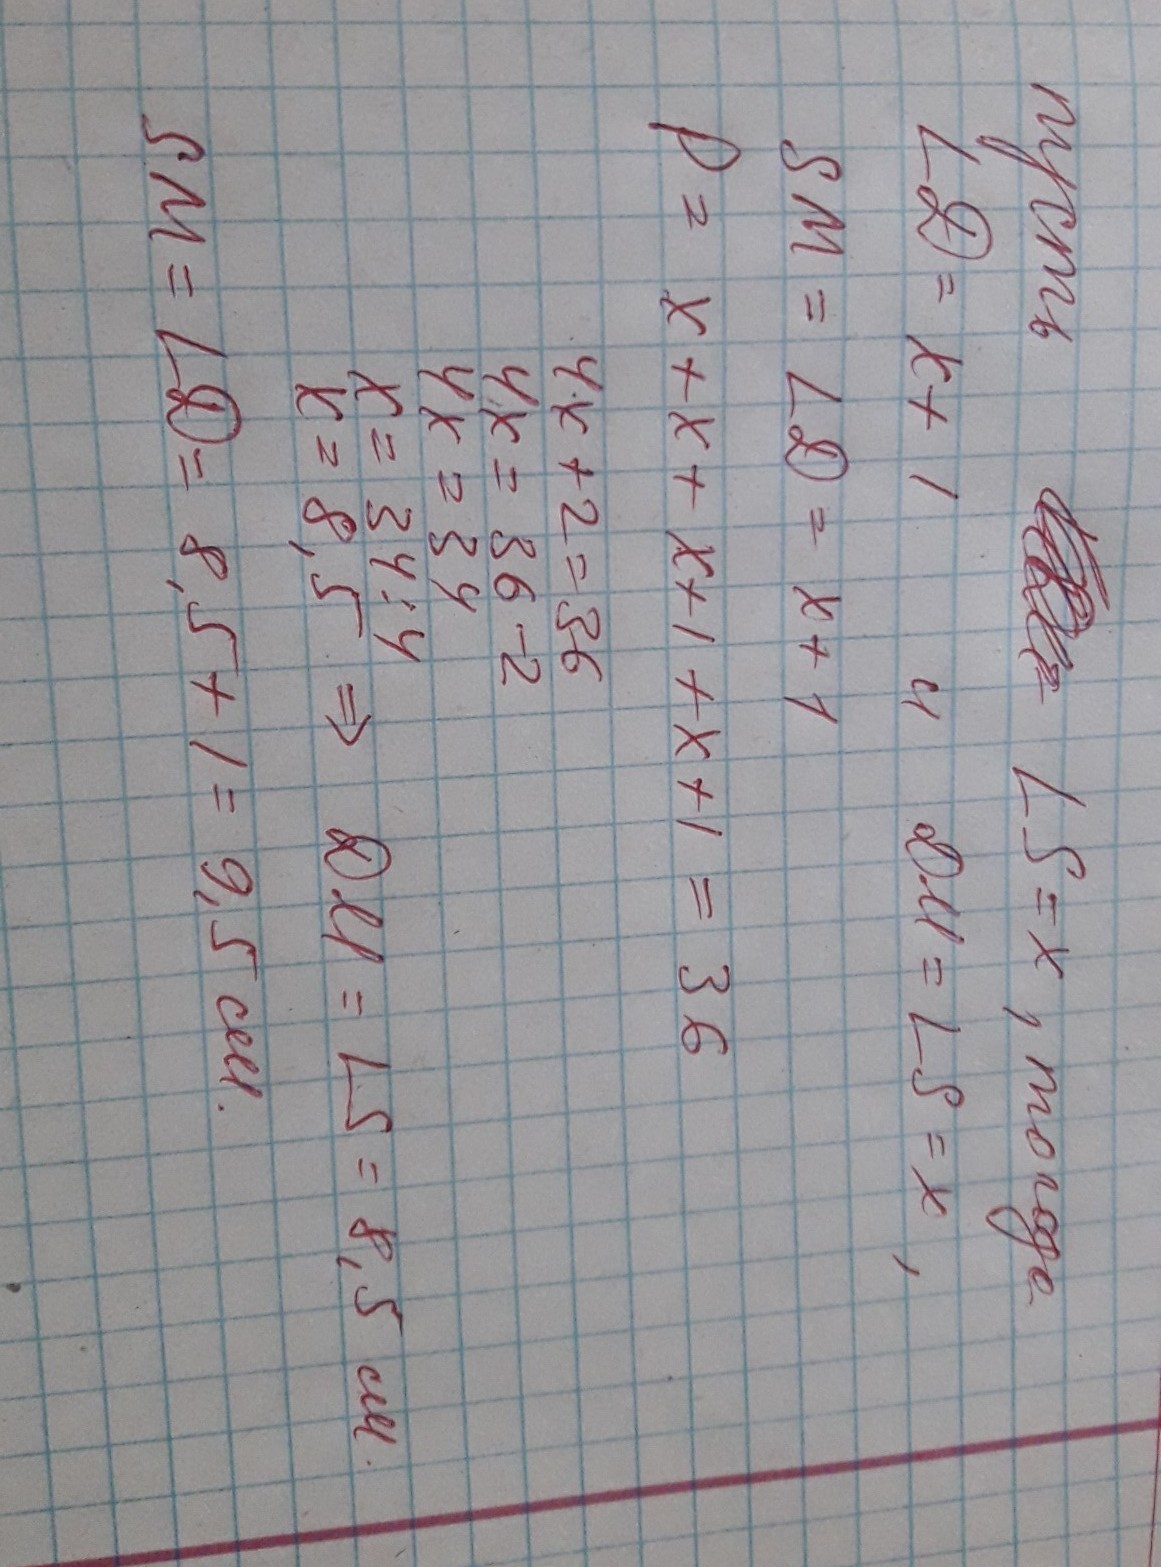 пусть LS = x, тогда
LD = x + 1 и DM = LS = x,
SM = LD = x + 1
P = x + x + x + 1 + x + 1 = 36
4x + 2 = 36
4x = 36 - 2
4x = 34
x = 34 : 4
x = 8,5 ⇒ DM = LS = 8,5 см.
SM = LD = 8,5 + 1 = 9,5 см.